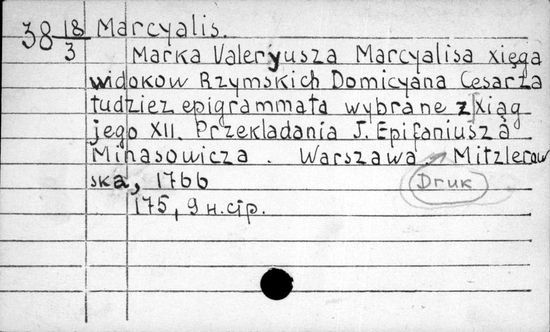 38 18/3 Marcyalis.
Marka Valeryusza Marcyalisa xięga
widokow Rzymskich Domicyana Cesarza
tudziez epigrammata wybrane z Xiąg
jego XII. Przekladania J. Epifaniusza
Minasowicza. Warszawa. Mitzlerow
ska, 1766
Druk
175, 9 н.стр.